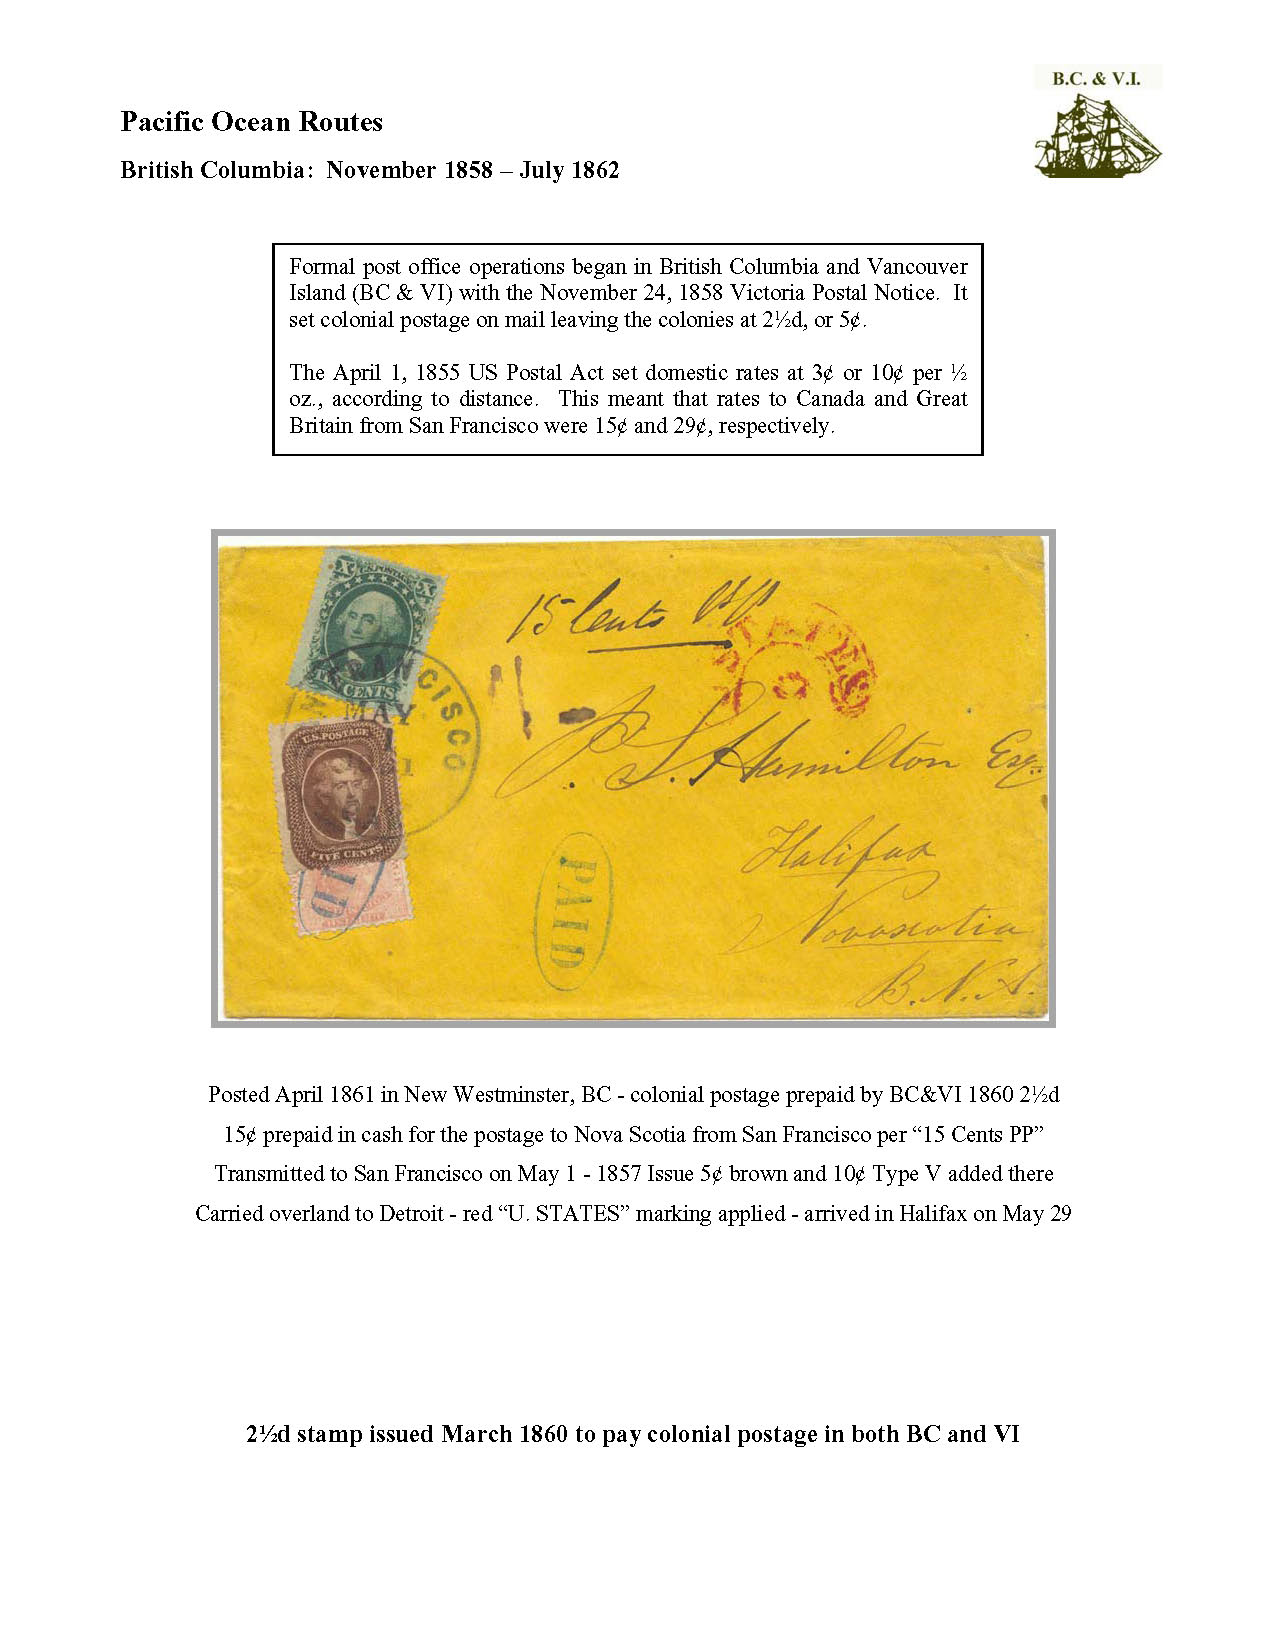 B.C. & V.I.
Pacific Ocean Routes
British Columbia: November 1858 – July 1862
Formal post office operations began in British Columbia and Vancouver
Island (BC & VI) with the November 24, 1858 Victoria Postal Notice. It
set colonial postage on mail leaving the colonies at 2½d, or 5¢.
The April 1, 1855 US Postal Act set domestic rates at 3¢ or 10¢ per ½
oz., according to distance. This meant that rates to Canada and Great
Britain from San Francisco were 15¢ and 29¢, respectively.
X U.S. POSTAGE X
TEN CENTS
FRANCISCO
MAY
1
U.S. POSTAGE
FIVE CENTS
15 Cents PP
STATES
P. S. Hamilton Esq.
Halifax
Novascotia
B.N.A.
PAID
Posted April 1861 in New Westminster, BC - colonial postage prepaid by BC&VI 1860 2½d
15¢ prepaid in cash for the postage to Nova Scotia from San Francisco per “15 Cents PP”
Transmitted to San Francisco on May 1 - 1857 Issue 5¢ brown and 10¢ Type V added there
Carried overland to Detroit - red “U. STATES” marking applied - arrived in Halifax on May 29
2½d stamp issued March 1860 to pay colonial postage in both BC and VI